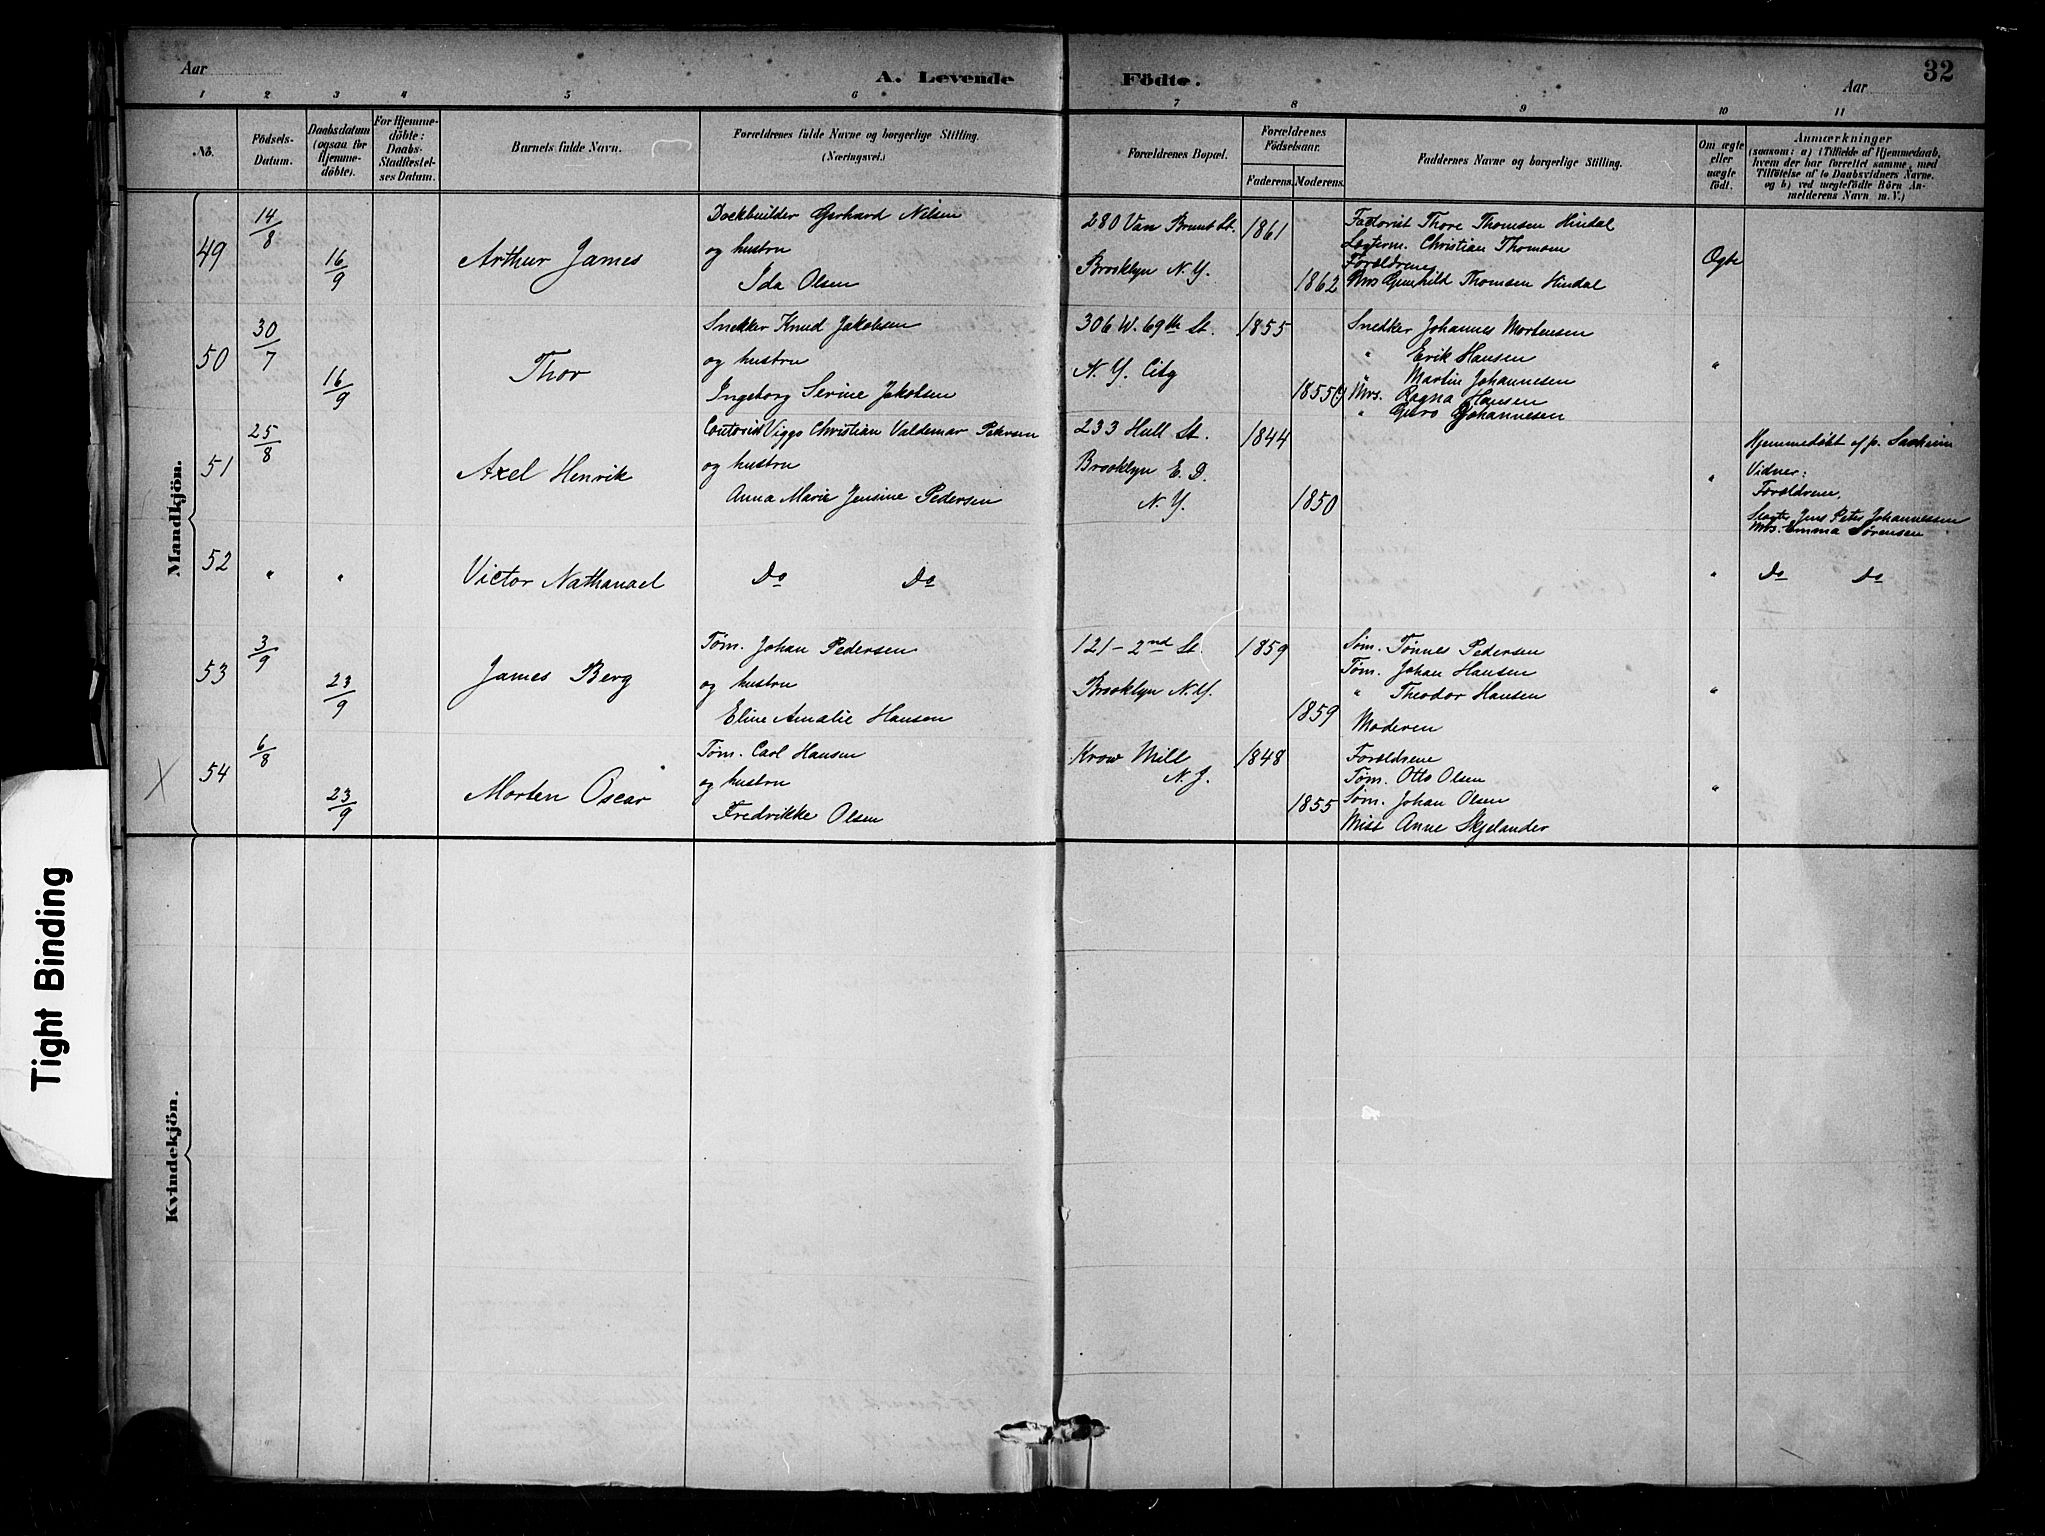 Aar
A. Levende Födte.
Aar
32
1 2 3 4 5 6 7 8 9 10 11
No.
Födsels-
Datum.
Daabsdatum
(ogsaa for
Hjemme-
döbte).
For Hjemme-
döbte:
Daabs-
Stadfæstel-
ses Datum.
Barnets fulde Navn.
Forældrenes fulde Navne og borgerlige Stilling.
(Næringsvei.)
Forældrenes Bopæl.
Forældrenes
Födselsaar.
Faderens. Moderens.
Faddernes Navne og borgerlige Stilling.
Om ægte
eller
uægte
födt.
Anmærkninger
(saasom: a) i Tilfælde af Hjemmedaab,
hvem der har forrettet samme, med
Tilföielse af to Daabsvidners Navne.
og b) ved uægtefödte Börn An-
melderens Navn m. V.)
Mandkjön.
49
14/8
16/9
Arthur James
Dockbuilder Gerhard Nilsen
og hustru
Ida Olsen
280 Van Brunt St.
Brooklyn N.Y.
1861
1862
Thore Thomsen Hindal
Christian Thomsen
Forældrene
Mrs Gunhild Thomsen Hindal
Ægte
50
30/7
16/9
Thor
Snekker Knud Jakobsen
og hustru
Ingeborg Serine Jakobsen
306 W. 69th St.
N.Y. City
1855
1855
Snedker Johannes Mortensen
" Erik Hansen
" Martin Johannesen
Mrs. Ragna Hansen
" Johannesen
"
51
25/8
Axel Henrik
Viggo Christian Valdemar Petersen
og hustru
Anna Marie Jensine Pedersen
233 Hull St.
Brooklyn E. D.
N.Y.
1844
1850
"
Hjemmedøbt af p. Saxheim
Vidner:
Forældrene,
Jens Peter Johannessen
Mrs. Emma Sørensen
52
"
"
Victor Nathanael
Do Do
"
Do Do
53
3/9
23/9
James Berg
Tøm. Johan Pedersen
og hustru
Eline Amalie Hansen
121 - 2nd St.
Brooklyn N.Y.
1859
1859
Søm. Tønnes Pedersen
Tøm. Johan Hansen
" Theodor Hansen
Moderen
"
X
54
6/8
23/9
Morten Oscar
Tøm. Carl Hansen
og hustru
Fredrikke Olsen
Krow Mill
N.J.
1848
1855
Forældrene
Tøm. Otto Olsen
Søm. Johan Olsen
Miss Anne Skjelander
"
Kvindekjön.
Tight Binding